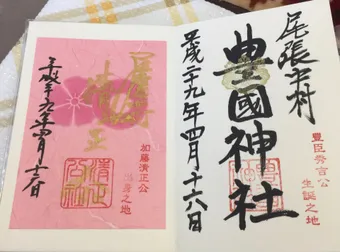 尾張中村
豊國神社
平成二十九年四月十六日
豊臣秀吉公
生誕之地
清正公
加藤清正公
出身之地
平成廿九年四月十六日